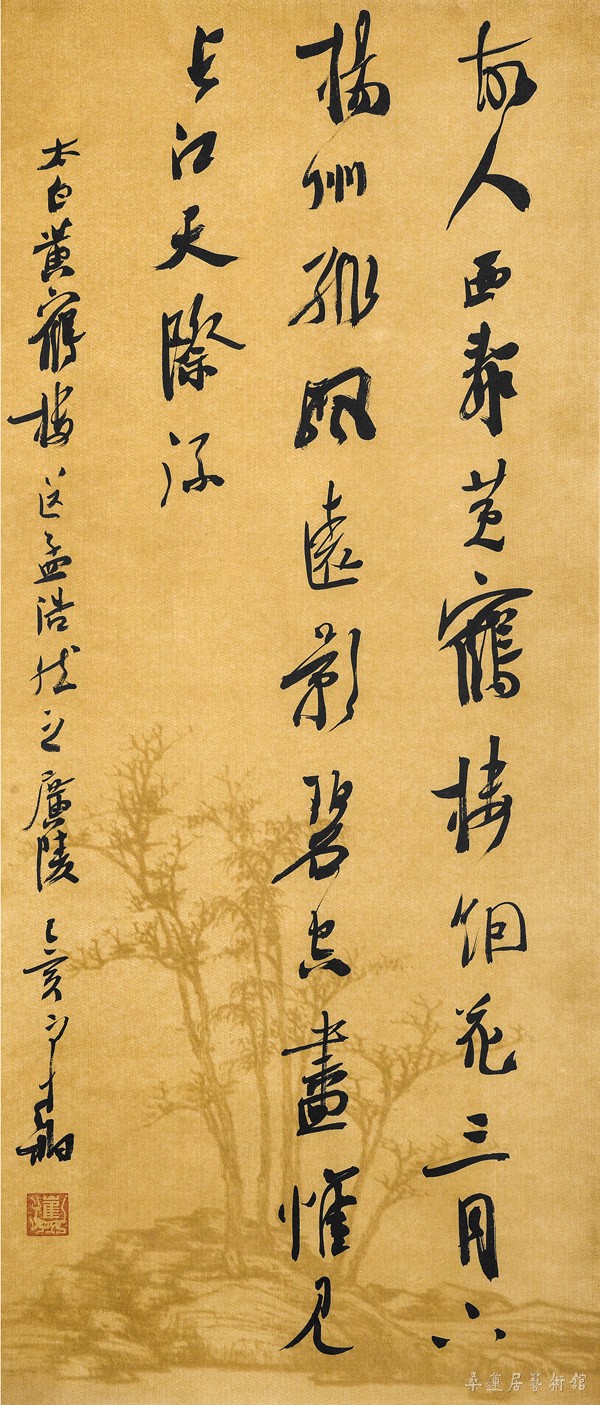 故人西辭黃鶴樓烟花三月下
揚州孤帆遠影碧空盡惟見
長江天際流
太白黃鶴樓送孟浩然之廣陵 己亥
桑蓮居藝術館